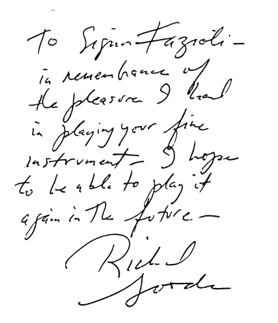 To Signor Fazioli -
in remembrance of
the pleasure I had
in playing your fine
instrument - I hope
to be able to play it
again in the future -
Richard
Goode